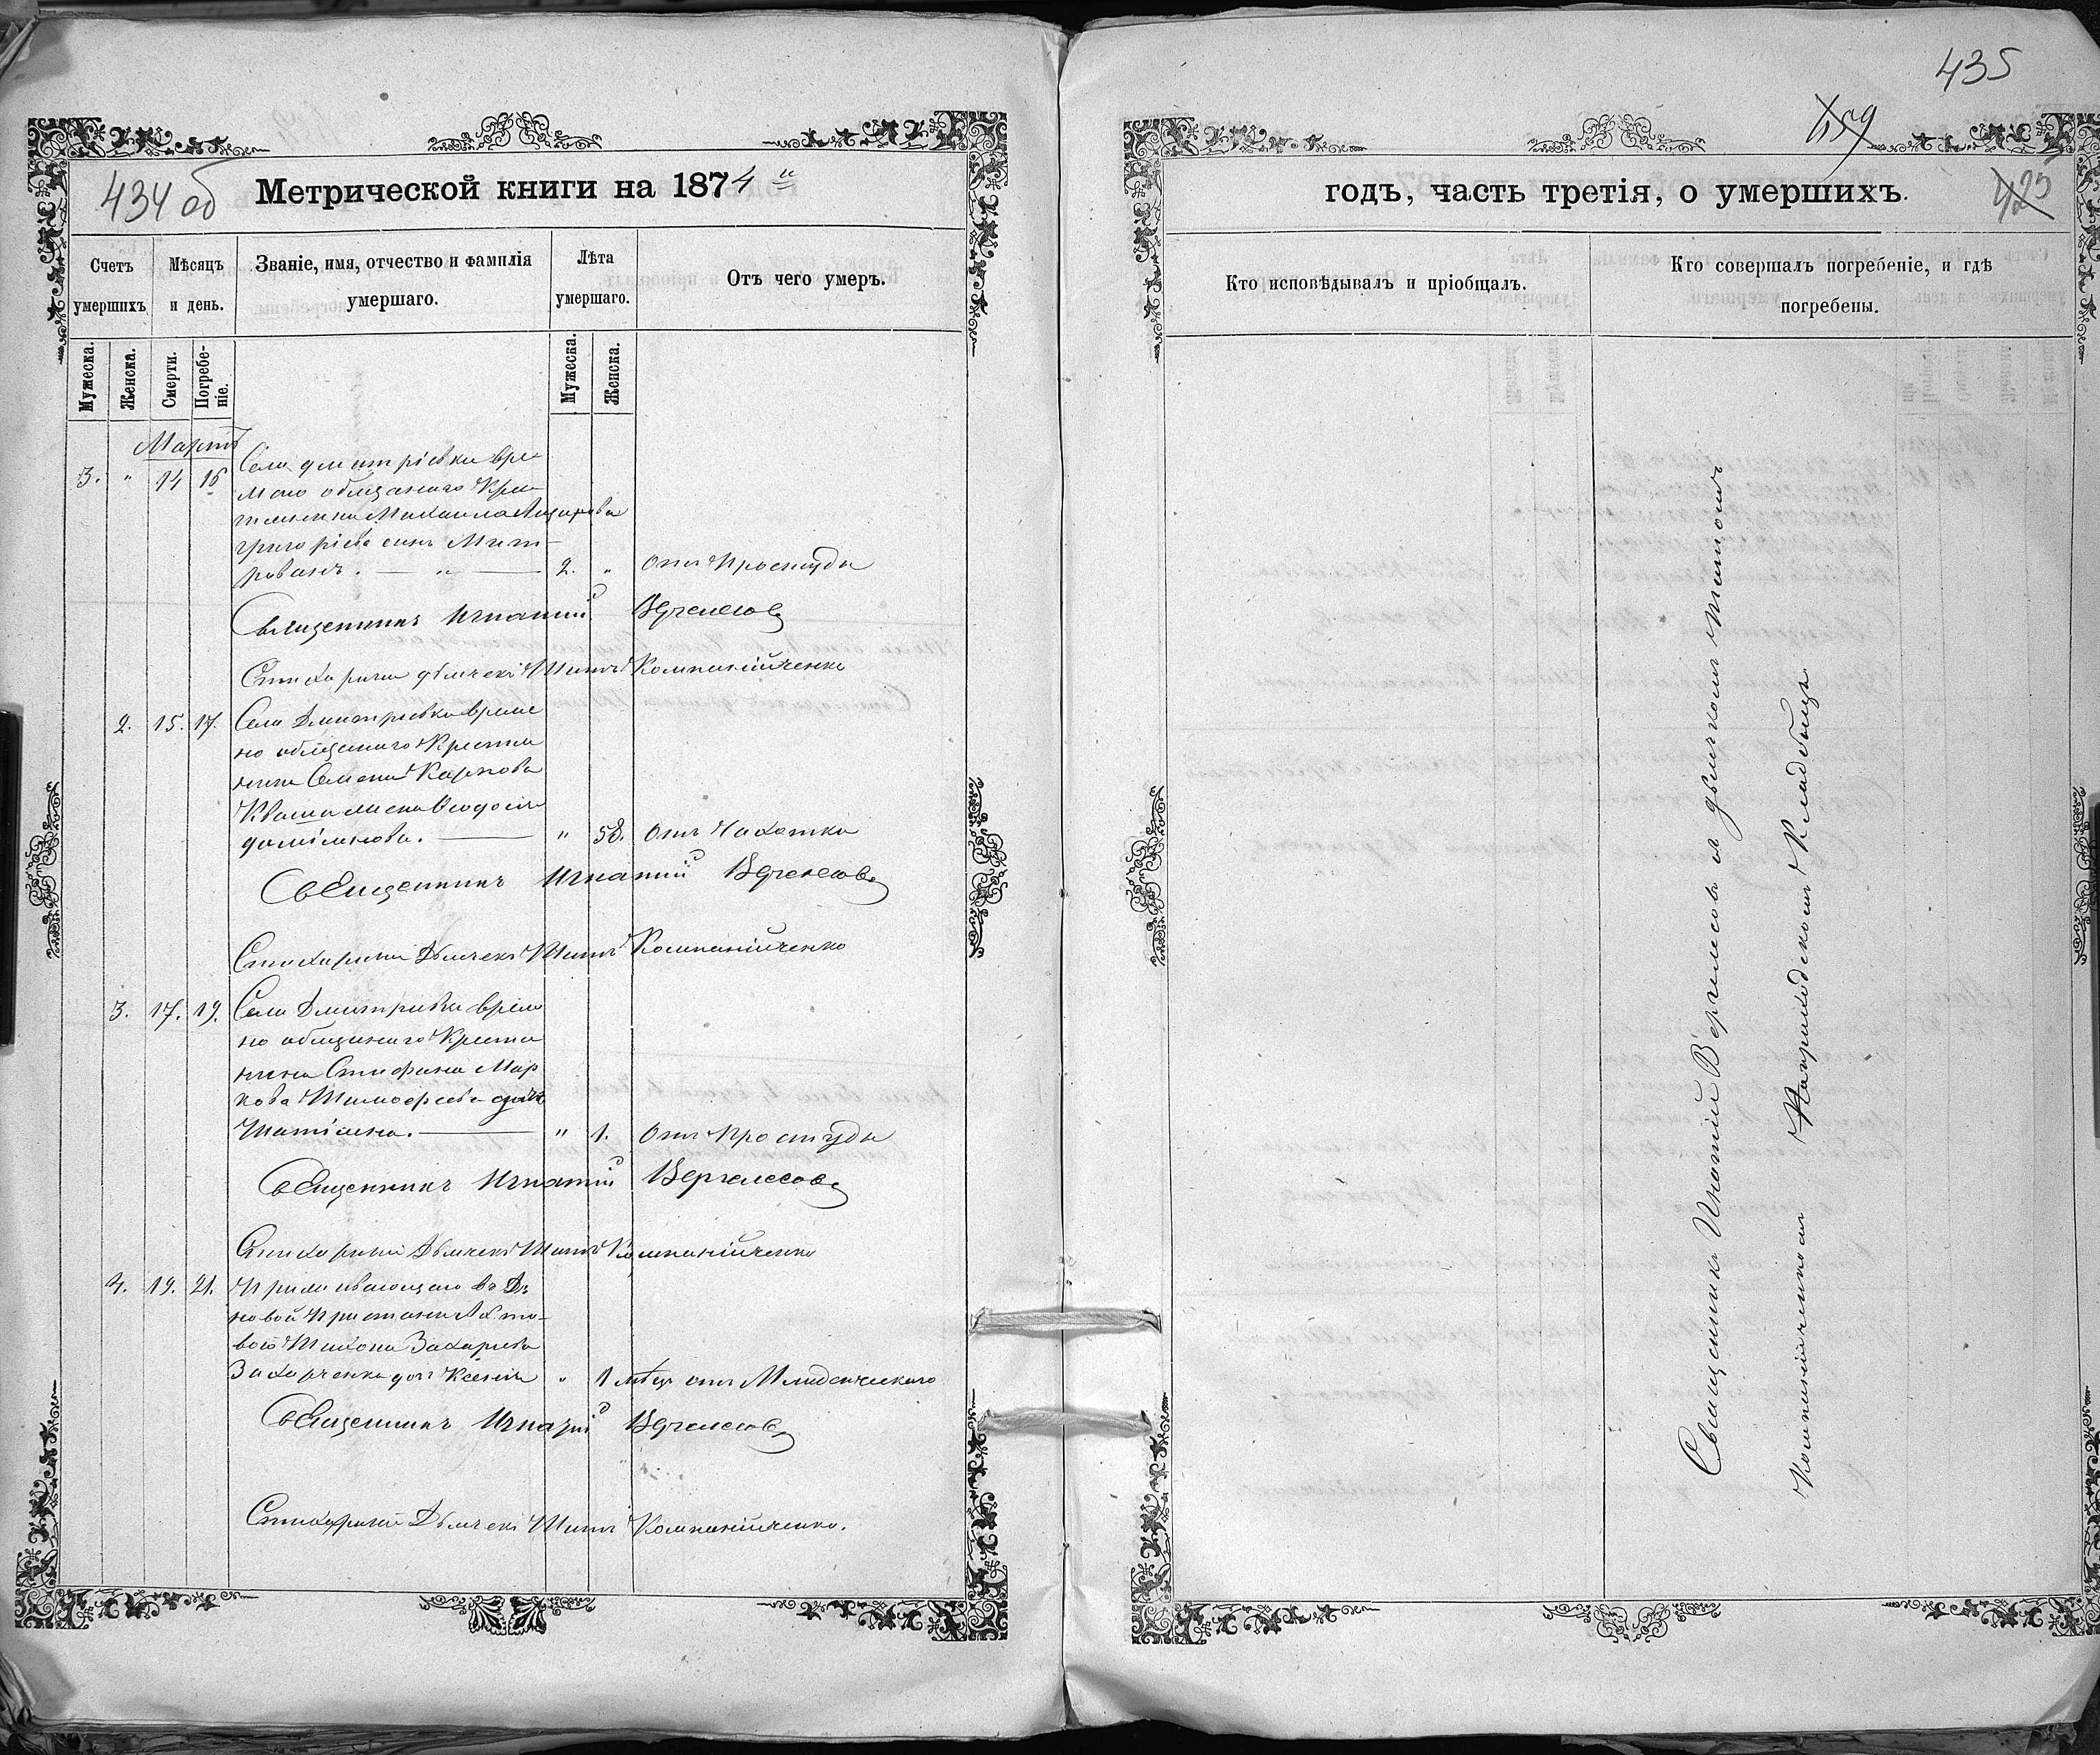 434 об
Метрической книги на 1874 й
Счетъ умершихъ
Мѣсяцъ и день.
Званіе, имя, отчество и фамилія умершаго.
Лѣта умершаго.
Отъ чего умеръ.
Мужеска.
Женска.
Смерти.
Погребе-ніе.
Мужеска.
Женска.
Мартъ
3. " 14 16 Села Дмитріевки вре-
мено обязанаго Крес-
тянина Михаила
Григоріева синъ Мит-
рованъ. — " — 2. " отъ Простуды
Священникъ Игнатий Вергелесовъ
Стихарний Дьячекъ Титъ Компанійченко
2. 15. 17. Села Дмитриевки време
но обязанаго Крестья
нина Семена Карпова
Кваша жена Феодосия
— " 58. отъ Чахотки
Священникъ Игнатий Вергелесовъ
Стихарний Дьячекъ Титъ Компанійченко
3. 17. 19. Села Дмитриевки време
но обязанаго Крестья
нина Стефана Мар
кова Тимофеева дочь
Татіана. — " 1. Отъ Простуды
Священникъ Игнатий Вергелесовъ
Стихарний Дьячекъ Титъ Компанійченко
4. 19. 21. Проживающаго во Дн
новой Пристани
Тихона Захариева
Захарченка доч Ксенія " 1 мѣсц отъ Младенческаго
Священникъ Игнатий Вергелесовъ
Стихарний Дьячекъ Титъ Компанійченко.
435
659
423
годъ, часть третія, о умершихъ.
Кто исповѣдывалъ и пріобщалъ.
Кто совершалъ погребеніе, и гдѣ погребены.
Священникъ Игнатій Вергелесовъ съ дьячкомъ Титомъ
Компанійченкомъ На приходскомъ Кладбищѣ